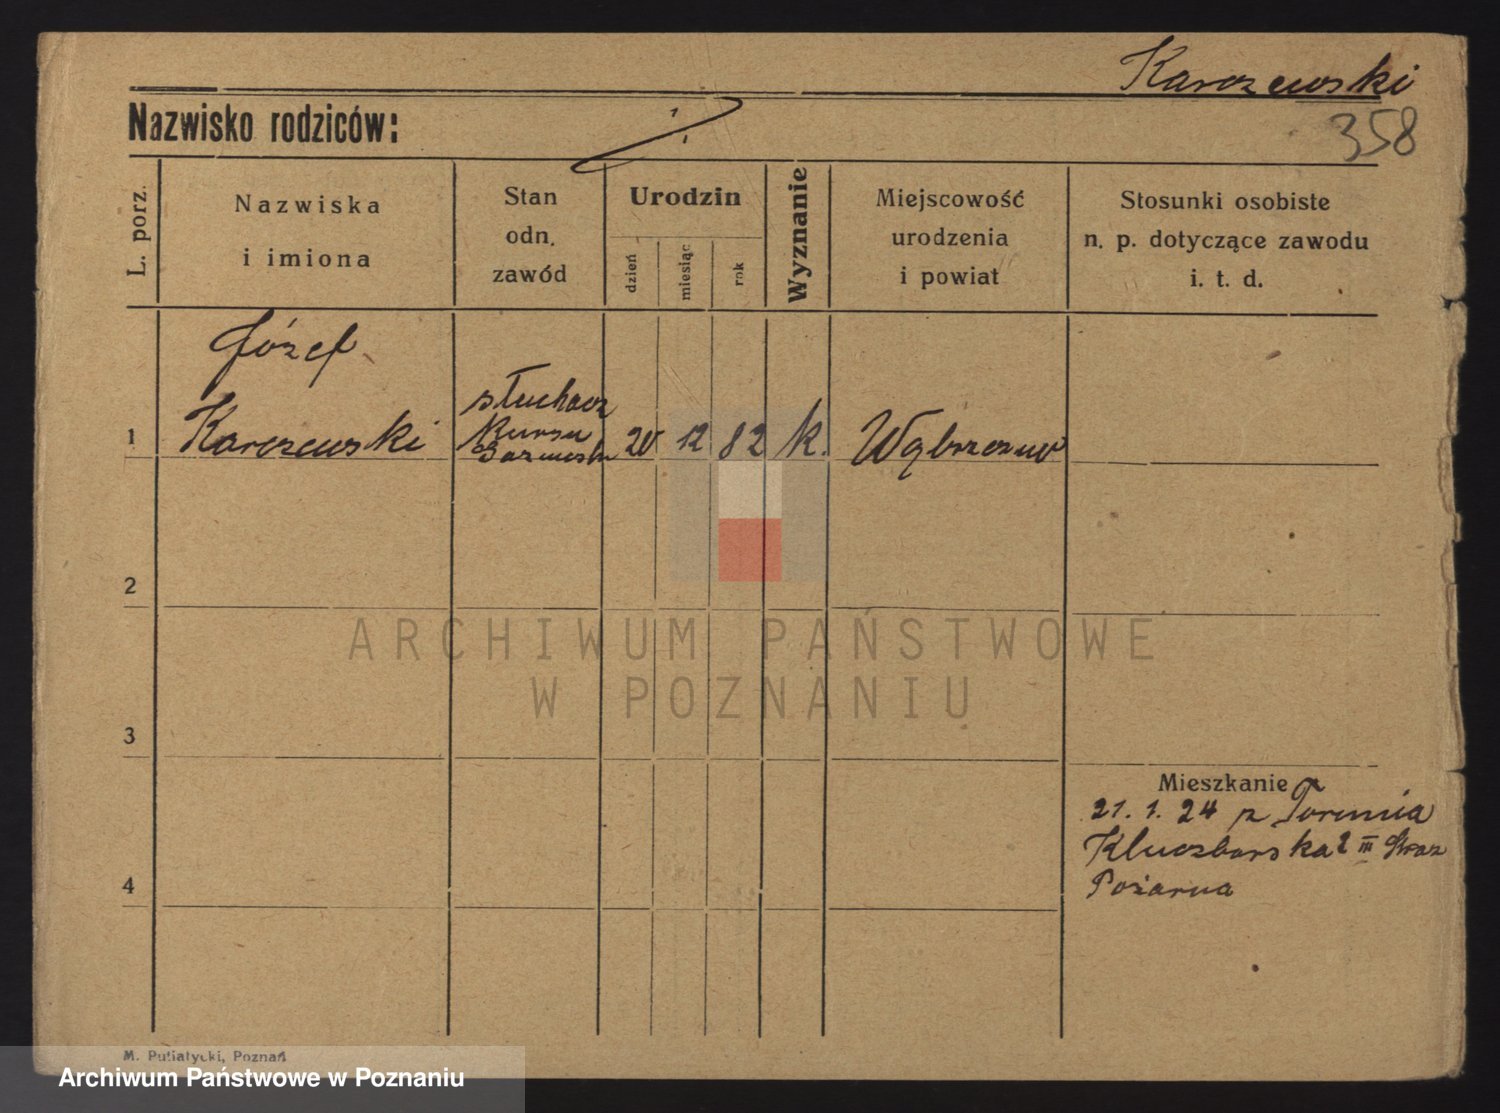 Karczewski
Nazwisko rodziców:
358
L. porz.
Nazwiska
i imiona
Stan
odn.
zawód
Urodzin
dzień
miesiąc
rok
Wyznanie
Miejscowość
urodzenia
i powiat
Stosunki osobiste
n. p. dotyczące zawodu
i. t. d.
Józef
1 Karczewski słuchacz Kursu 20 12 82 k. Wąbrzeźno
2
ARCHIWUM PAŃSTWOWE
W POZNANIU
3
Mieszkanie
21. 1. 24 z Torunia
Kluczborska 2 III Straż
4 Pożarna
M. Putiatycki, Poznań
Archiwum Państwowe w Poznaniu